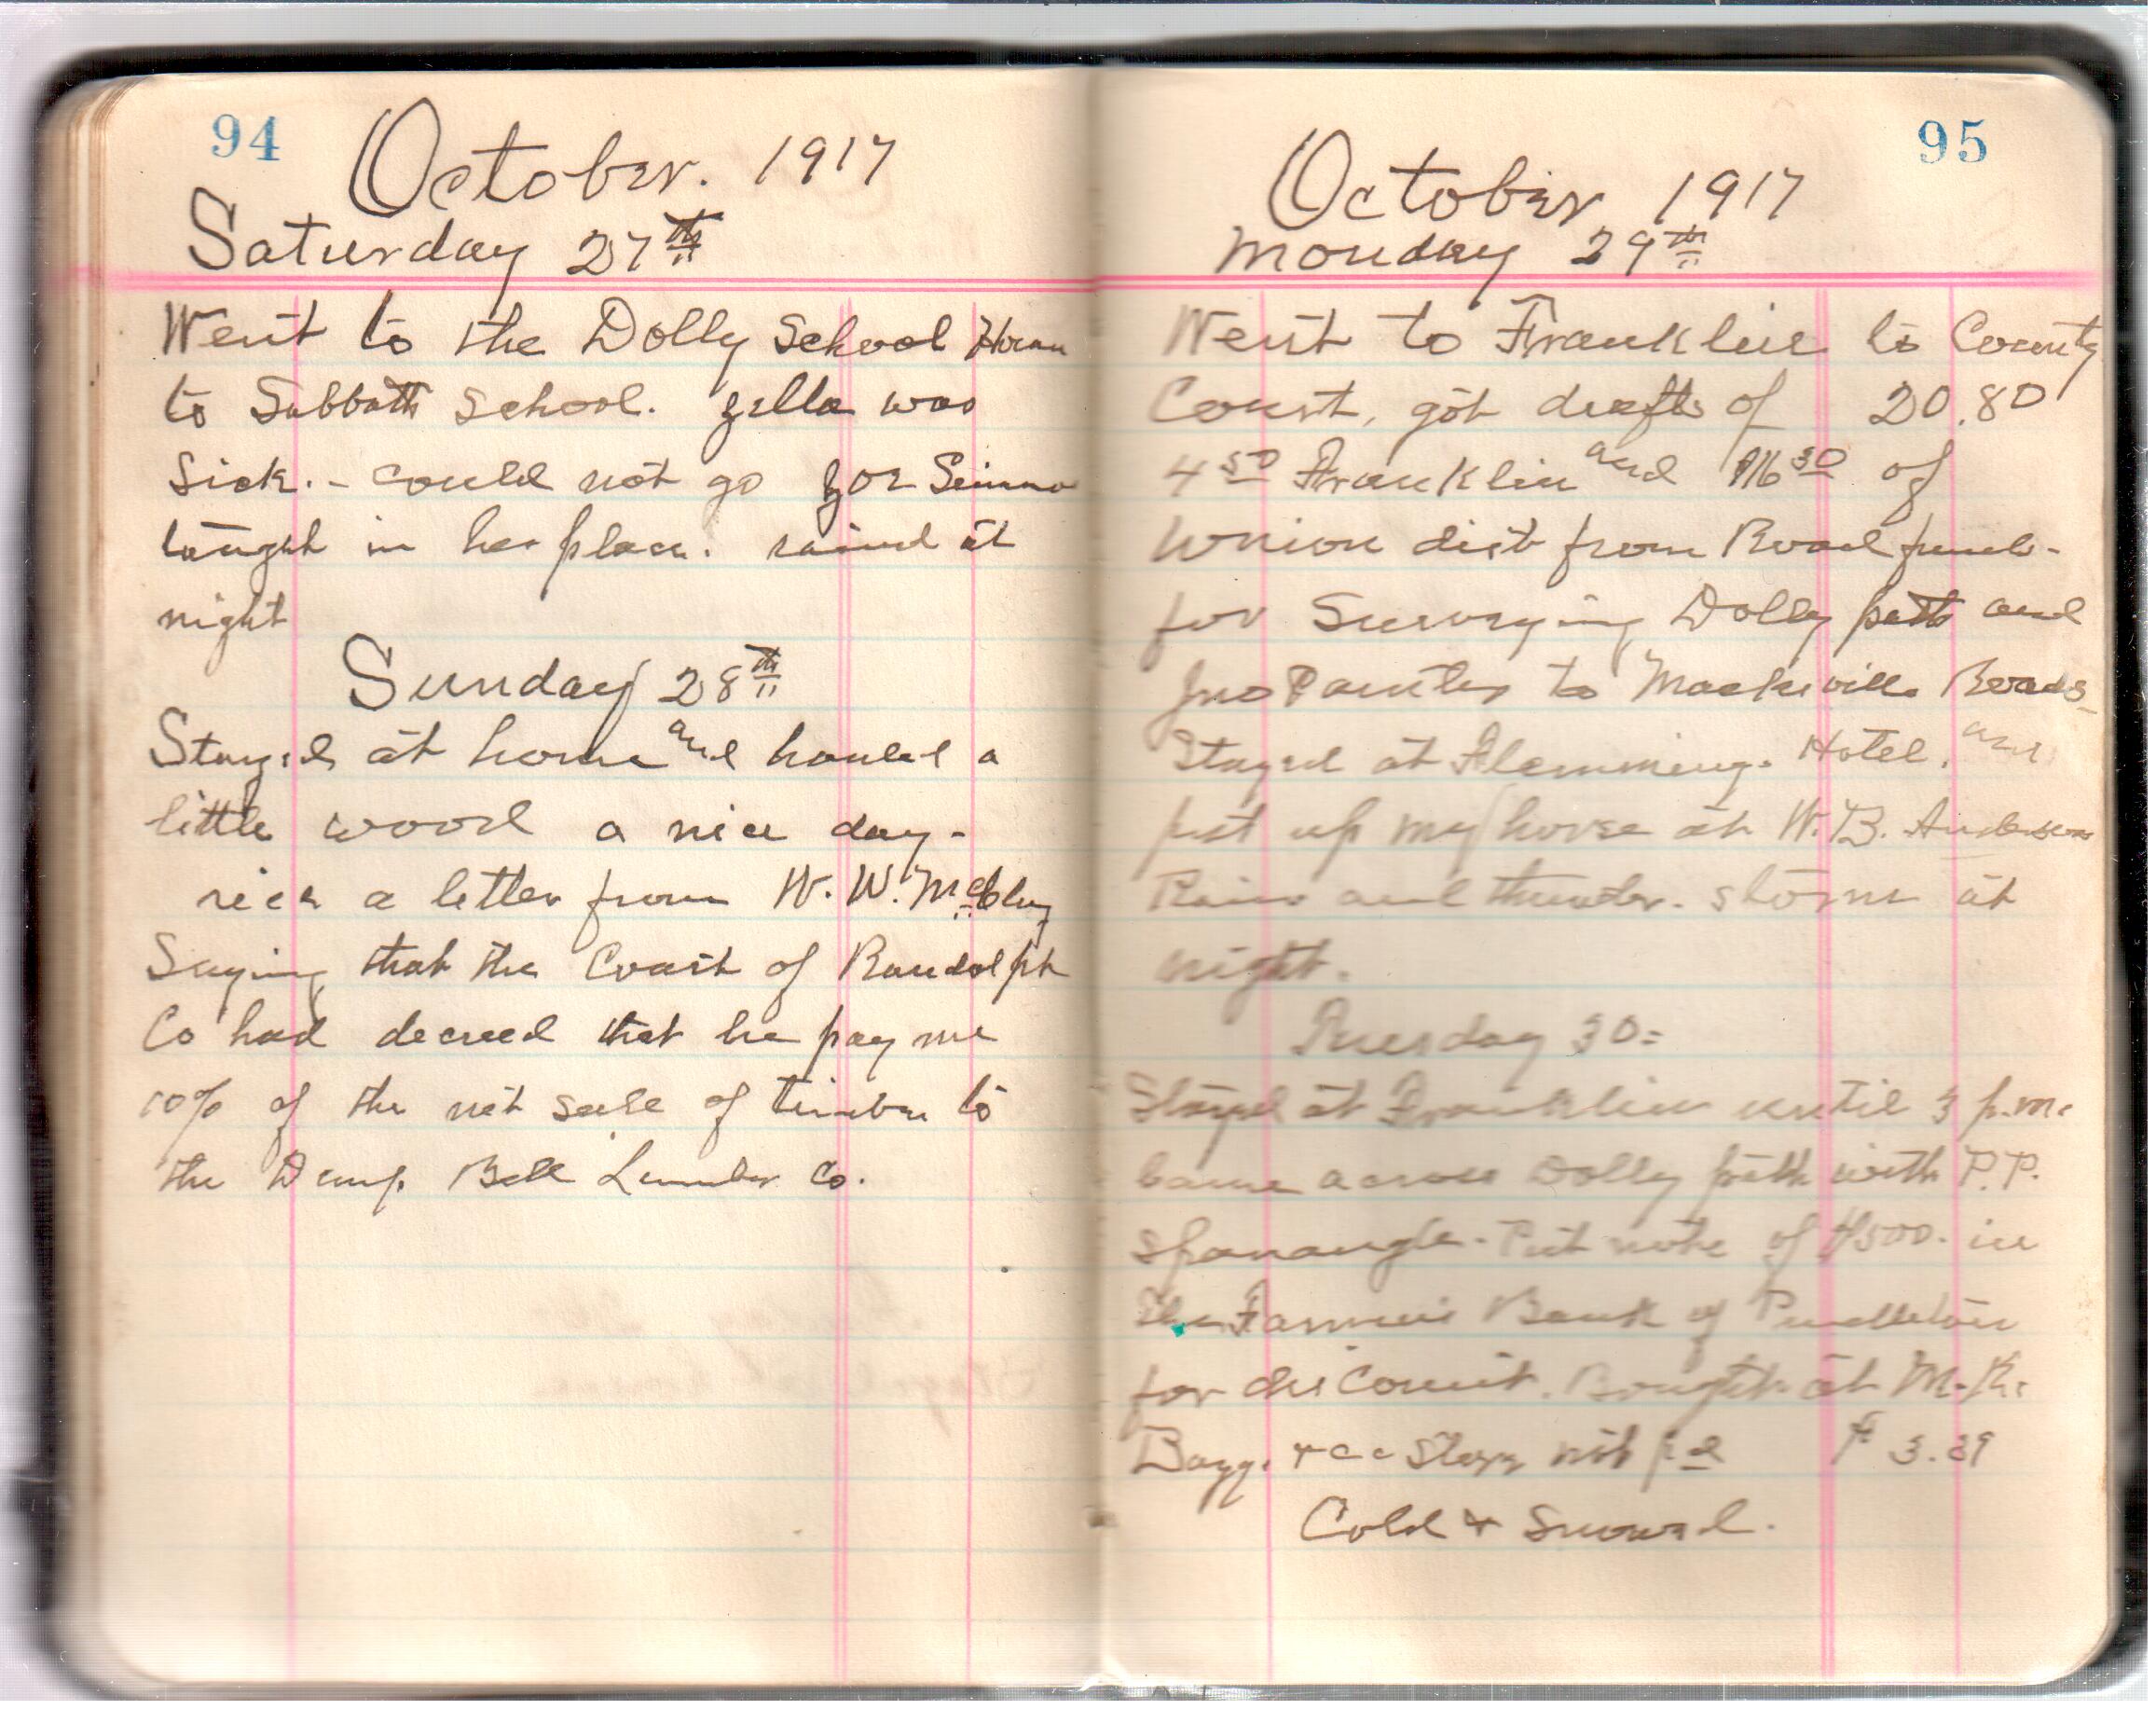 94
October. 1917
Saturday 27th
Went to the Dolly School House
to Sabbath School. Zella was
Sick. - could not go Zoe Simmo
taught in her place. rained at
night
Sunday 28th
Stayed at home and hauled a
little wood a nice day -
recd a letter from W. W. McClug
Saying that the Court of Randolph
Co had decreed that he pay me
10% of the net sale of timber to
the Dump Bell Lumber Co.
95
October 1917
Monday 29th
Went to Franklin to County
Court, got drafts of 20.80
4 50 Franklin and $16 30 of
Union dist from Road funds -
for Surveying Dolly path and
Jno Painter to Macksville Roads
Stayed at Flemming. Hotel, and
put up my horse at W. B. Anderson
Rain and thunder. storm at
night.
Tuesday 30 =
Stayed at Franklin until 3 p.m.
Came across Dolly path with P. P.
Sponaugle. Put note of $500. in
the Farmers Bank of Pendleton
for discount. Bought at M. K.
Bogg. Store not pd $ 3.39
Cold + Snowed.